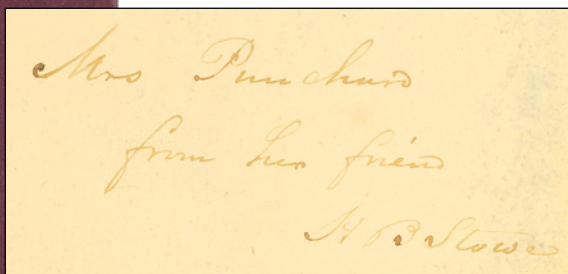 Mrs Punchard
from her friend
H B Stowe